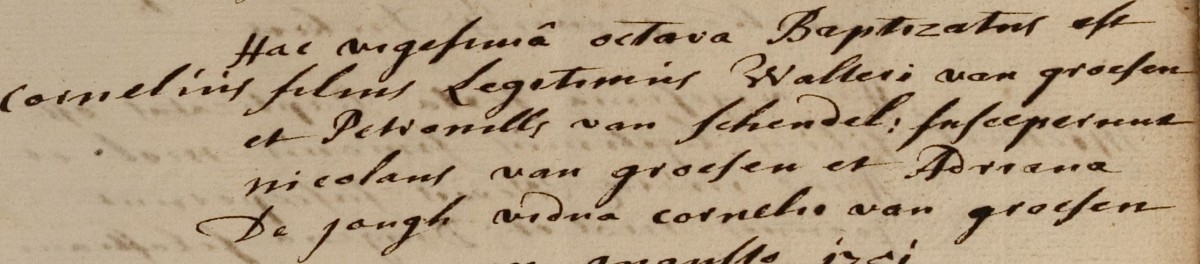 Hac vigesimâ octava Baptizatus est
Cornelius filius Legitimus Walteri van groesen
et Petronellę van schendel; susceperunt
nicolaus van groesen et Adriana
De jongh vidua cornelii van groesen
augusto 1701